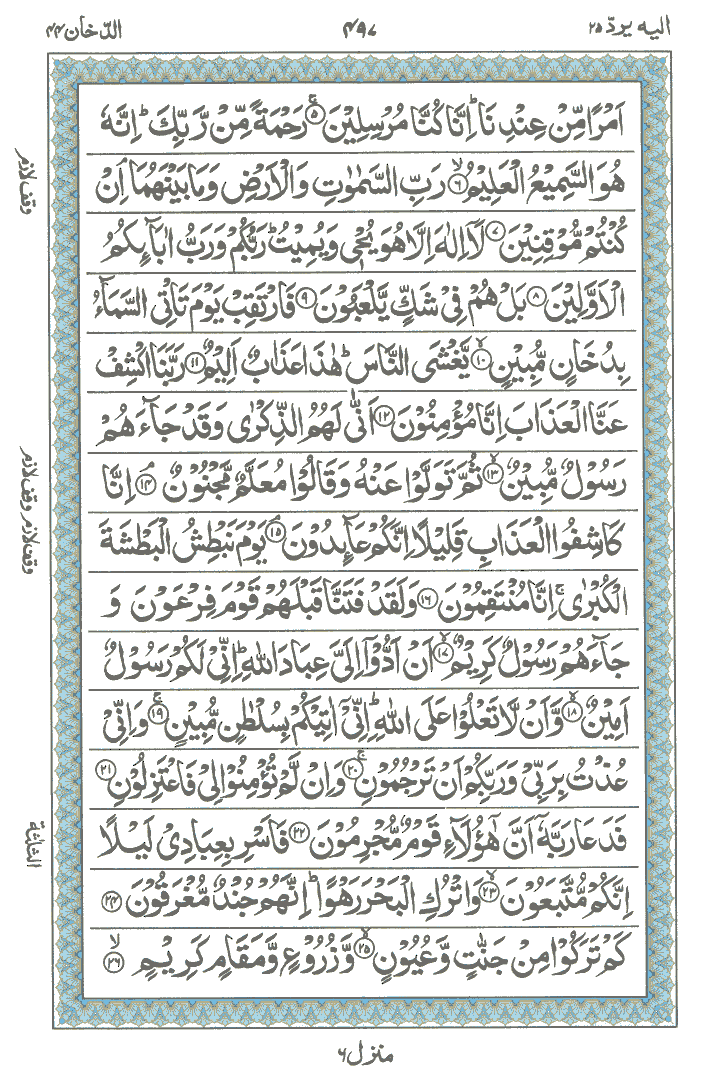 الیه یردّ ۲۵ ۴۹۷ الدّخان ۴۴
اَمْرًا مِّنْ عِنْدِنَا ؕ اِنَّا كُنَّا مُرْسِلِیْنَ ۚ﴿۵﴾ رَحْمَةً مِّنْ رَّبِّكَ ؕ اِنَّهٗ
هُوَ السَّمِیْعُ الْعَلِیْمُ ۙ﴿۶﴾ رَبِّ السَّمٰوٰتِ وَالْاَرْضِ وَمَا بَیْنَهُمَا ۘ اِنْ
وقف لازم
كُنْتُمْ مُّوْقِنِیْنَ ﴿۷﴾ لَاۤ اِلٰهَ اِلَّا هُوَ یُحْیٖ وَیُمِیْتُ ؕ رَبُّكُمْ وَرَبُّ اٰبَآىِٕكُمُ
الْاَوَّلِیْنَ ﴿۸﴾ بَلْ هُمْ فِیْ شَكٍّ یَّلْعَبُوْنَ ﴿۹﴾ فَارْتَقِبْ یَوْمَ تَاْتِی السَّمَآءُ
بِدُخَانٍ مُّبِیْنٍ ۙ﴿۱۰﴾ یَّغْشَی النَّاسَ ؕ هٰذَا عَذَابٌ اَلِیْمٌ ﴿۱۱﴾ رَبَّنَا اكْشِفْ
عَنَّا الْعَذَابَ اِنَّا مُؤْمِنُوْنَ ﴿۱۲﴾ اَنّٰی لَهُمُ الذِّكْرٰی وَقَدْ جَآءَهُمْ
رَسُوْلٌ مُّبِیْنٌ ۙ﴿۱۳﴾ ثُمَّ تَوَلَّوْا عَنْهُ وَقَالُوْا مُعَلَّمٌ مَّجْنُوْنٌ ۘ﴿۱۴﴾ اِنَّا
وقف لازم وقف لازم
كَاشِفُوا الْعَذَابِ قَلِیْلًا اِنَّكُمْ عَآىِٕدُوْنَ ۘ﴿۱۵﴾ یَوْمَ نَبْطِشُ الْبَطْشَةَ
الْكُبْرٰی ۚ اِنَّا مُنْتَقِمُوْنَ ﴿۱۶﴾ وَلَقَدْ فَتَنَّا قَبْلَهُمْ قَوْمَ فِرْعَوْنَ وَ
جَآءَهُمْ رَسُوْلٌ كَرِیْمٌ ۙ﴿۱۷﴾ اَنْ اَدُّوْۤا اِلَیَّ عِبَادَ اللّٰهِ ؕ اِنِّیْ لَكُمْ رَسُوْلٌ
اَمِیْنٌ ۙ﴿۱۸﴾ وَّاَنْ لَّا تَعْلُوْا عَلَی اللّٰهِ ؕ اِنِّیْۤ اٰتِیْكُمْ بِسُلْطٰنٍ مُّبِیْنٍ ۚ﴿۱۹﴾ وَاِنِّیْ
عُذْتُ بِرَبِّیْ وَرَبِّكُمْ اَنْ تَرْجُمُوْنِ ۚ﴿۲۰﴾ وَاِنْ لَّمْ تُؤْمِنُوْا لِیْ فَاعْتَزِلُوْنِ ﴿۲۱﴾
فَدَعَا رَبَّهٗۤ اَنَّ هٰۤؤُلَآءِ قَوْمٌ مُّجْرِمُوْنَ ﴿۲۲﴾ فَاَسْرِ بِعِبَادِیْ لَیْلًا
الثلثة
اِنَّكُمْ مُّتَّبَعُوْنَ ۙ﴿۲۳﴾ وَاتْرُكِ الْبَحْرَ رَهْوًا ؕ اِنَّهُمْ جُنْدٌ مُّغْرَقُوْنَ ﴿۲۴﴾
كَمْ تَرَكُوْا مِنْ جَنّٰتٍ وَّعُیُوْنٍ ۙ﴿۲۵﴾ وَّزُرُوْعٍ وَّمَقَامٍ كَرِیْمٍ ۙ﴿۲۶﴾
منزل ۶